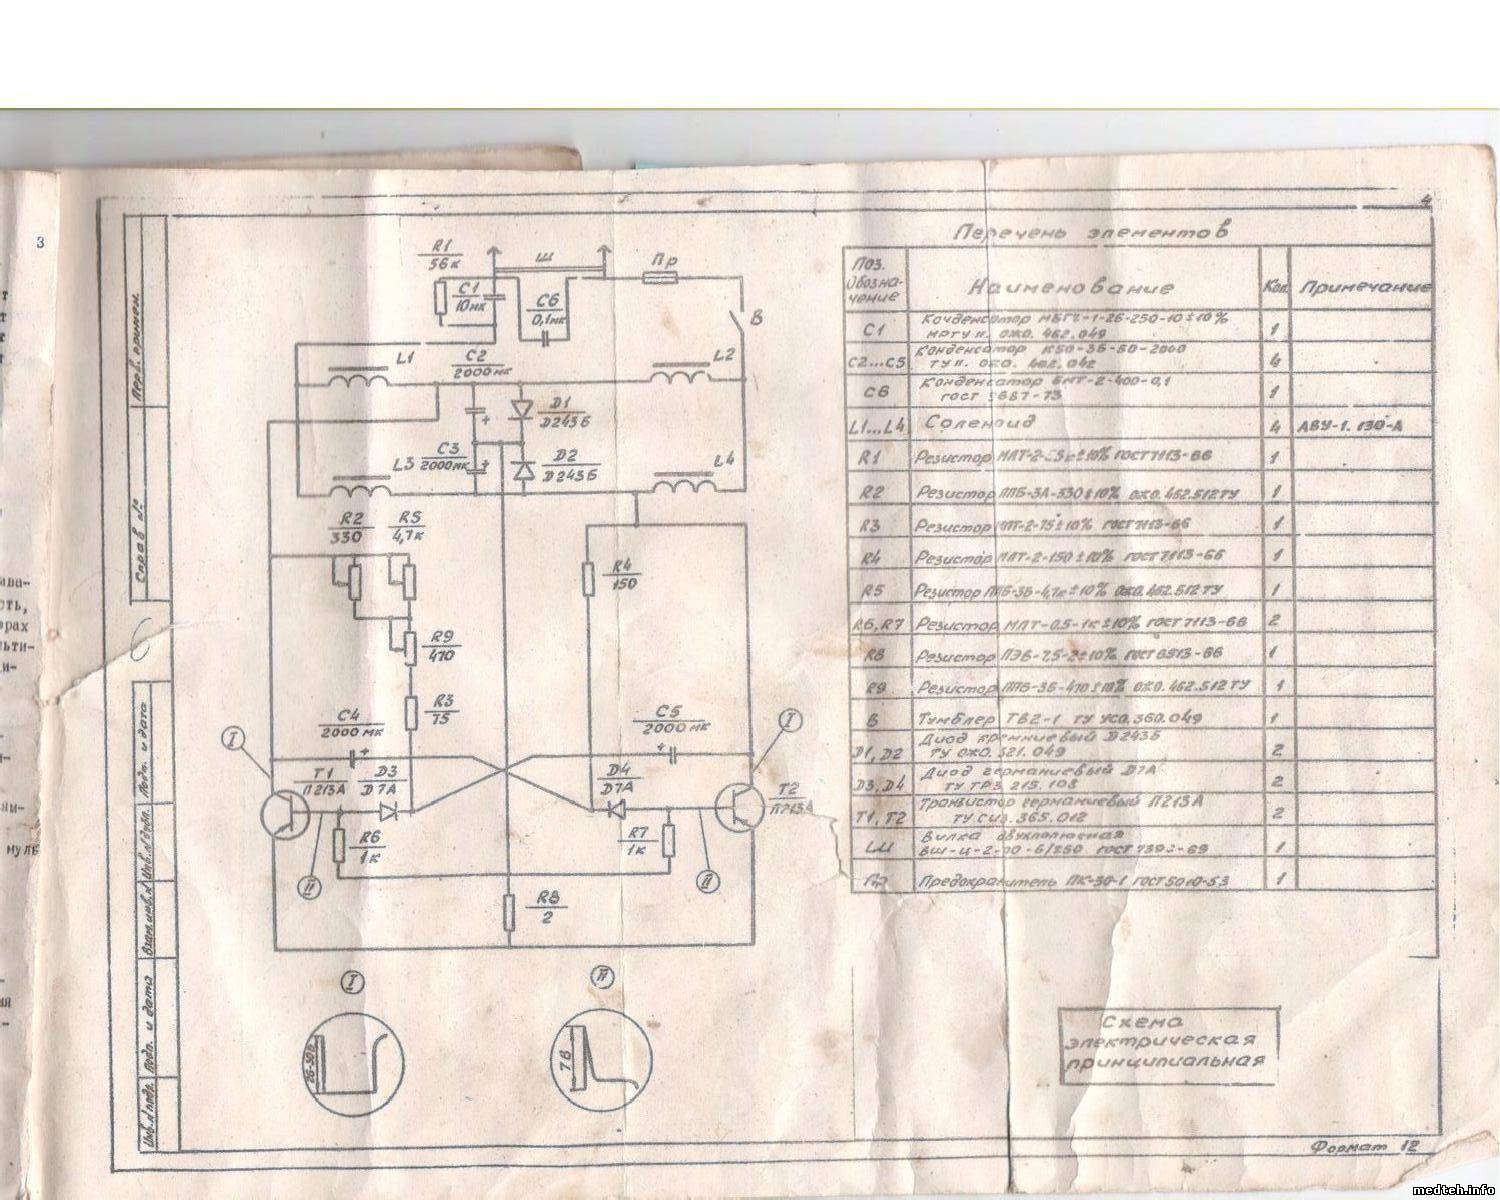 3
4
Перв. примен.
Справ №
Подп. и дата
Инв.№дубл.
Взам.инв.№
Подп. и дата
Инв.№подл.
R1
56к
С1
10мк
Ш
С6
0,1мк
Пр
В
L1
С2
2000мк
L2
Д1
Д243Б
С3
2000мк
Д2
Д243Б
L3
L4
R2
330
R5
4,7к
R4
150
R9
470
R3
75
С4
2000 мк
С5
2000 мк
I
I
Т1
П213А
Д3
Д7А
Д4
Д7А
Т2
П213А
R6
1к
R7
1к
II
II
R8
2
I
II
7В
Перечень элементов
Поз. Обозна-чение
Наименование
Кол.
Примечание
С1
Конденсатор МБГЧ-1-2Б-250-10±10%
МРТУ II. ОЖО. 462.049
1
С2...С5
Конденсатор К50-3Б-50-2000
ТУ II. ОЖО. 462.042
4
С6
Конденсатор БМТ-2-400-0,1
ГОСТ 9687-73
1
L1...L4
Соленоид
4
АВУ-1.130-А
R1
Резистор МЛТ-2- ±10% ГОСТ7113-66
1
R2
Резистор ППБ-3А-330±10% ОЖО.462.512ТУ
1
R3
Резистор МЛТ-2-75±10% ГОСТ7113-66
1
R4
Резистор МЛТ-2-150±10% ГОСТ7113-66
1
R5
Резистор ППБ-3Б-4,7к±10% ОЖО.462.512ТУ
1
R6,R7
Резистор МЛТ-0,5-1к±10% ГОСТ7113-66
2
R8
Резистор ПЭВ-7,5-2±10% ГОСТ6513-66
1
R9
Резистор ППБ-3Б-470±10% ОЖО.462.512ТУ
1
В
Тумблер ТВ2-1 ТУ УСО.360.049
1
Д1,Д2
Диод кремниевый Д243Б
ТУ ОЖО.321.049
2
Д3,Д4
Диод германиевый Д7А
ТУ ТР3.215.108
2
Т1,Т2
Транзистор германиевый П213А
ТУ СИ3.365.012
2
Ш
Вилка двухполюсная
ВШ-Ц-2- -6/250. ГОСТ 7396-69
1
Пр
Предохранитель ПК-30-1 ГОСТ5010-53
1
Схема
электрическая
принципиальная
Формат 12
medteh.info